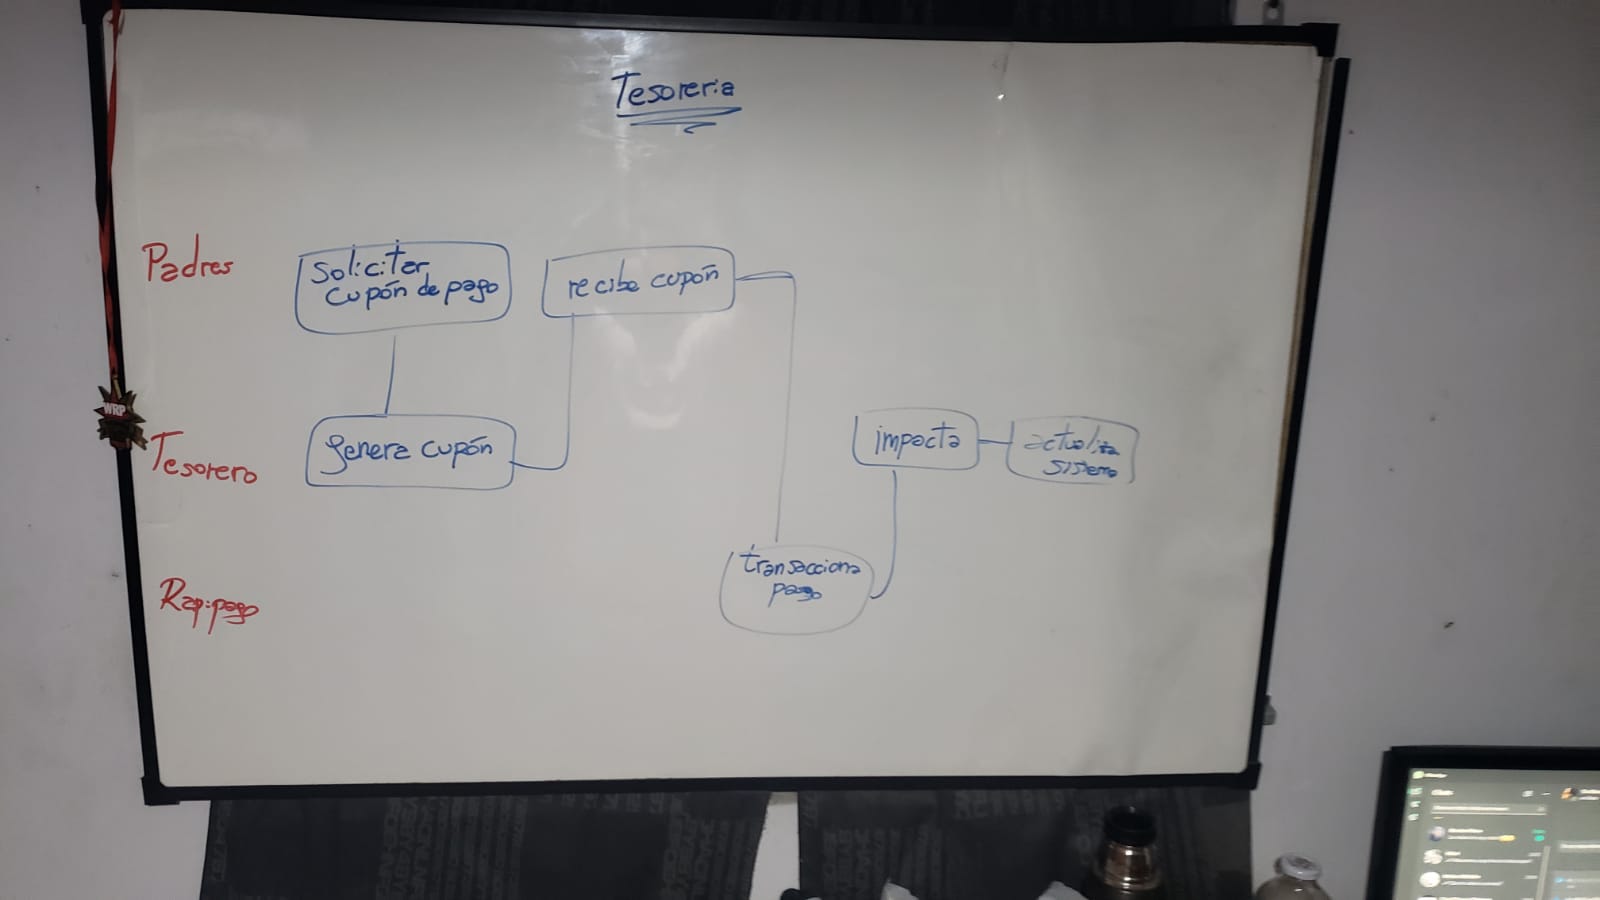 Tesoreria
Padres
Solicitar
cupón de pago
recibe cupón
Tesorero
genera cupón
impacta
actualiza
sistema
Rapipago
transacciona
pago
WRP